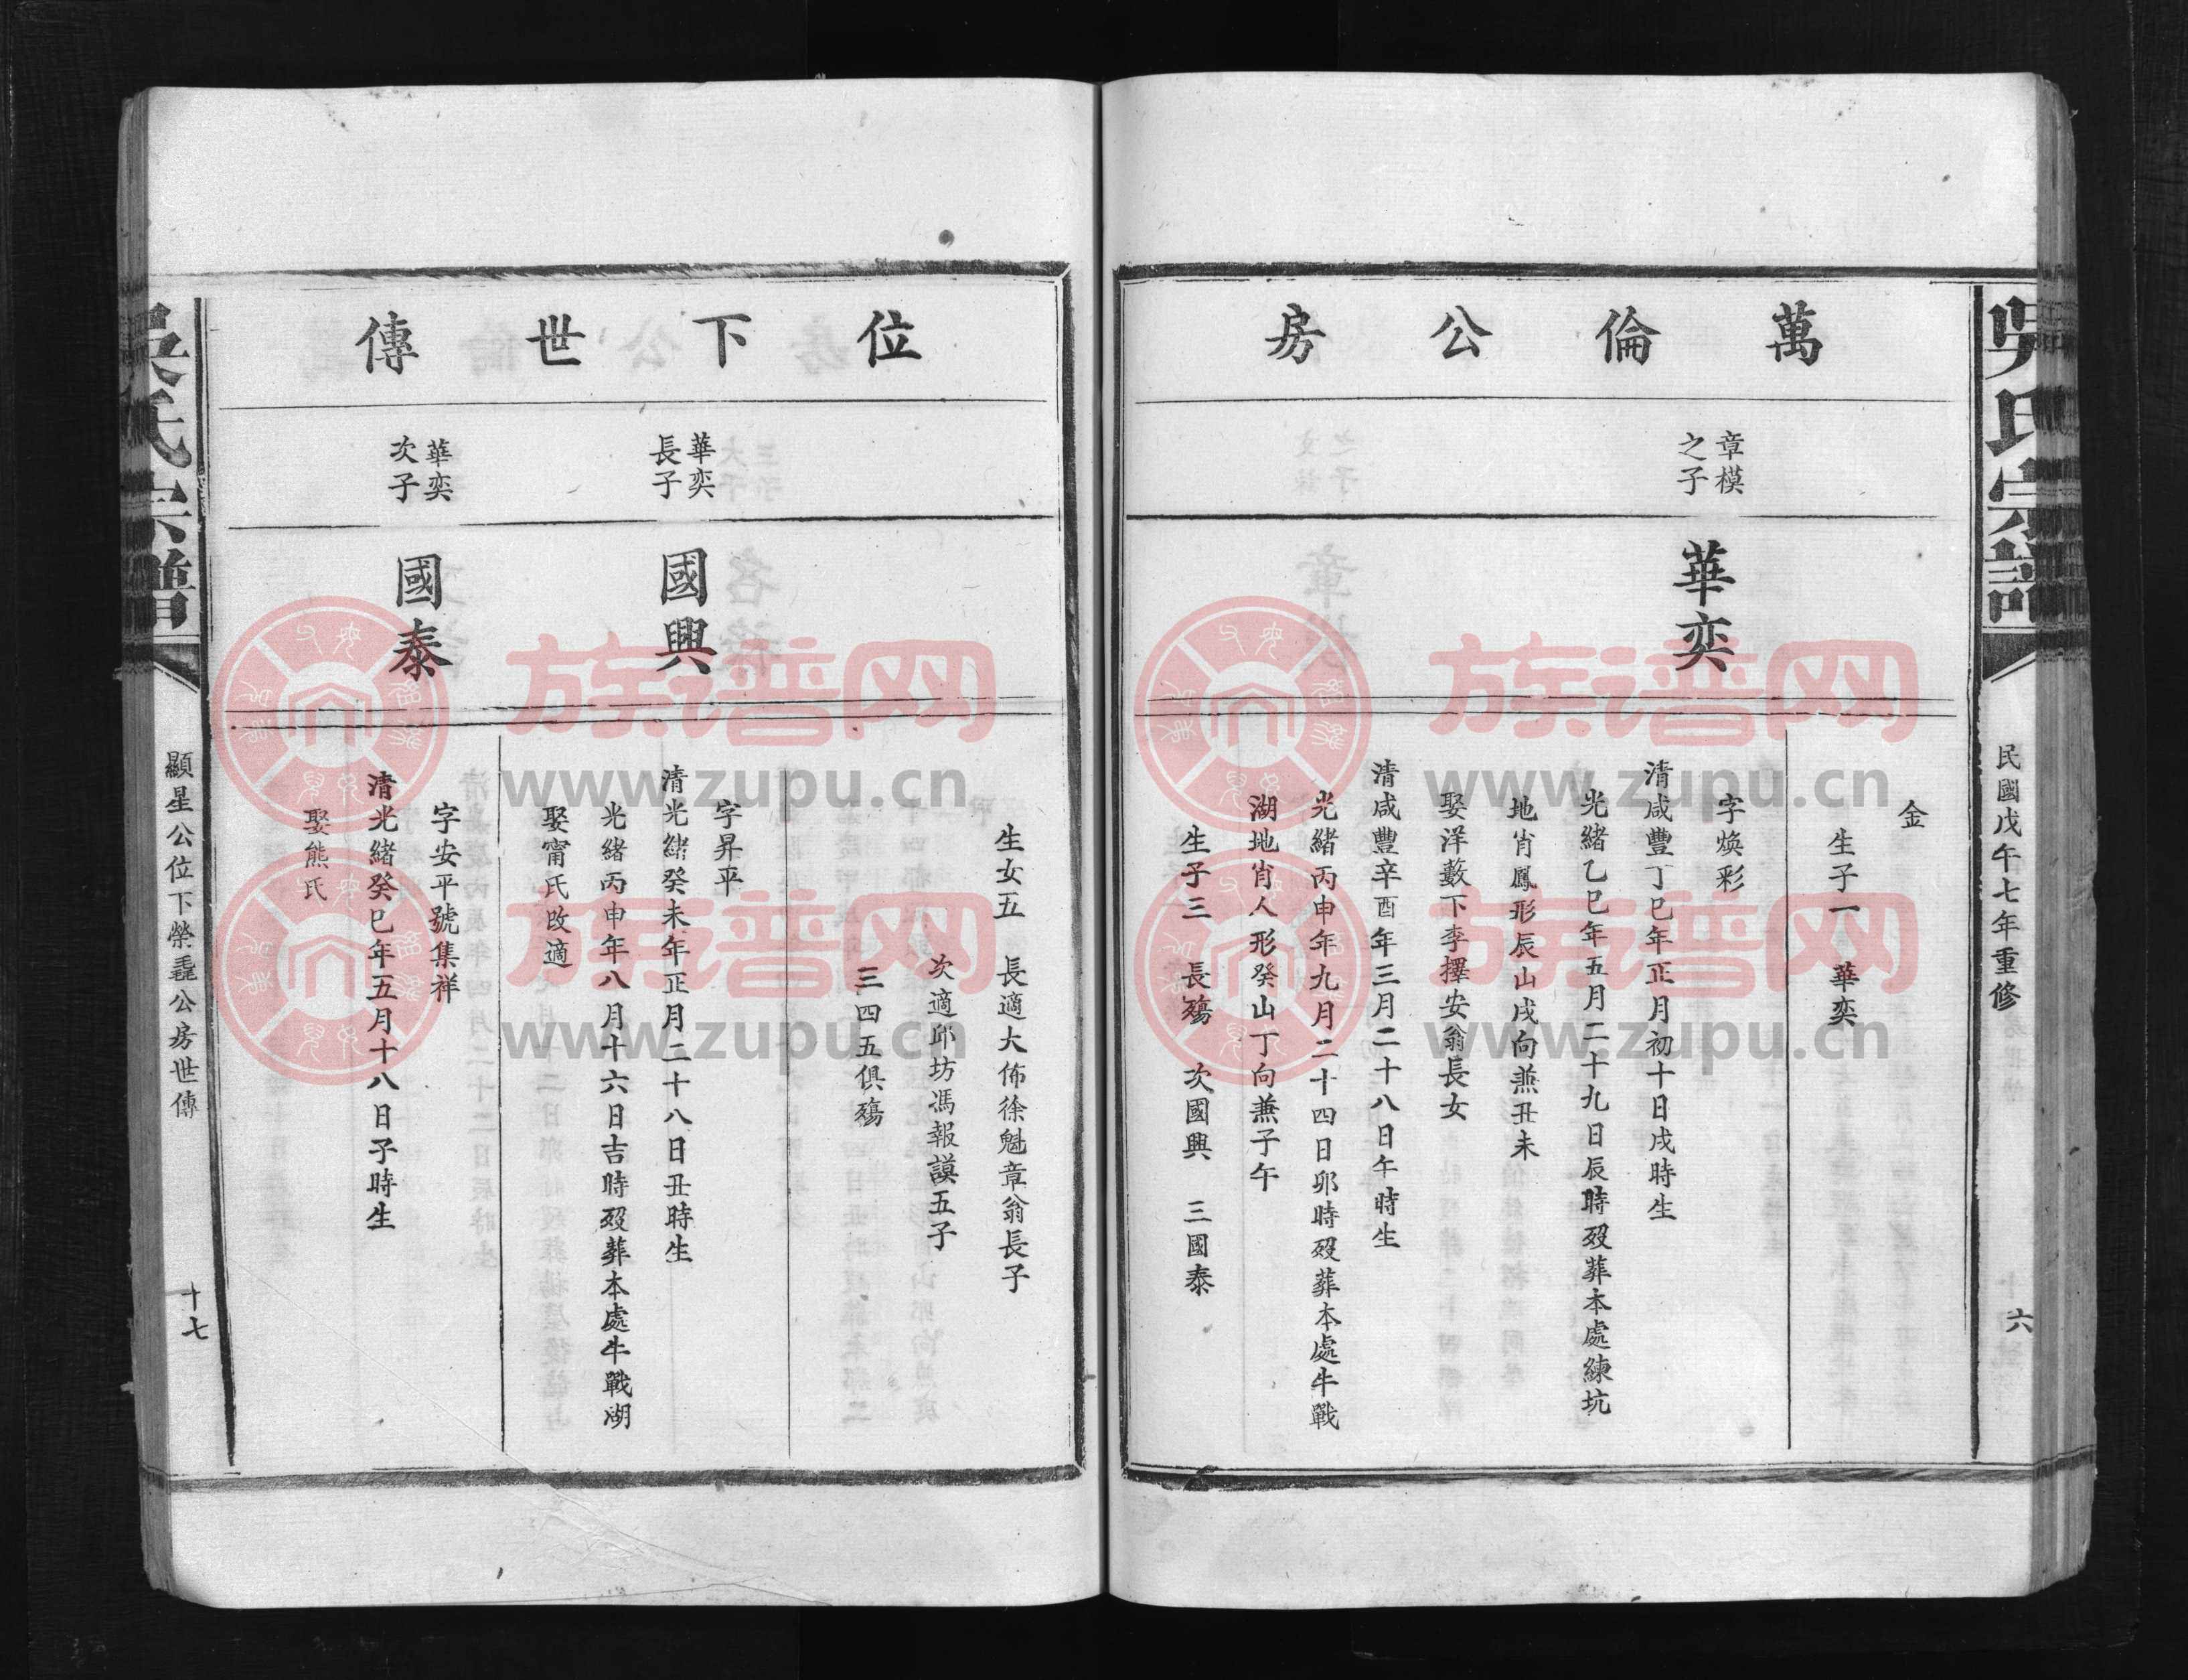 吳氏宗譜
民國戊午七年重修
六
萬倫公房
章模
之子
華奕
金
生子一 華奕
字煥彩
清咸豐丁巳年正月初十日戌時生
光緒乙巳年五月二十九日辰時歿葬本處練坑
地肖鳳形辰山戌向兼丑未
娶洋藪下李擇安翁長女
清咸豐辛酉年三月二十八日午時生
光緒丙申年九月二十四日卯時歿葬本處牛戰
湖地肖人形癸山丁向兼子午
生子三 長殤 次國興 三國泰
位下世傳
華奕
長子
國興
華奕
次子
國泰
生女五 長適大佈徐魁章翁長子
次適邱坊馮報謨五子
三四五俱殤
字昇平
清光緒癸未年正月二十八日丑時生
光緒丙申年八月十六日吉時歿葬本處牛戰湖
娶甯氏改適
字安平號集祥
清光緒癸巳年五月十八日子時生
娶熊氏
吳氏宗譜
顯星公位下榮毳公房世傳
十七
族谱网
www.zupu.cn
族谱网
www.zupu.cn
族谱网
www.zupu.cn
族谱网
www.zupu.cn